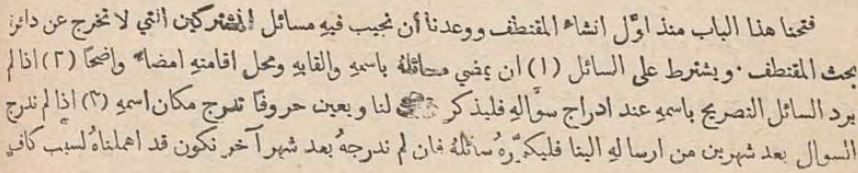 فتحنا هذا الباب منذ اوَّل انشاء المقتطف ووعدنا أن نجيب فيهِ مسائل المشتركين التي لا تخرج عن دائرة
بحث المقتطف . ويشترط على السائل (١) ان يمضي مسائلهُ باسمهِ والقابهِ ومحل اقامتهِ امضاءً واضحًا (٢) اذا لم
يرد السائل التصريح باسمهِ عند ادراج سؤالهِ فليذكر ذلك لنا ويعين حروفًا تدرج مكان اسمهِ (٣) اذا لم ندرج
السوال بعد شهرين من ارسالهِ الينا فليكرّرهُ سائلهُ فان لم ندرجهُ بعد شهر آخر نكون قد اهملناهُ لسبب كافٍ